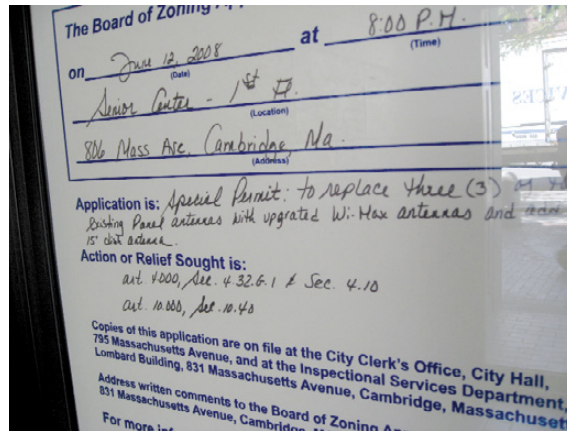 The Board of Zoning
on June 12, 2008 at 8:00 P.M.
(Date) (Time)
Senior Center - 1st Fl.
(Location)
806 Mass Ave, Cambridge, Ma.
(Address)
Application is: Special Permit: to replace three (3) of
Existing Panel antennas with upgrated Wi-Max antennas and add
15" dish antenna.
Action or Relief Sought is:
art. 4.000, Sec. 4.32.G.1 & Sec. 4.10
art. 10.000, Sec. 10.40
Copies of this application are on file at the City Clerk's Office, City Hall,
795 Massachusetts Avenue, and at the Inspectional Services Department,
Lombard Building, 831 Massachusetts Avenue, Cambridge,
Address written comments to the Board of Zoning
831 Massachusetts Avenue,
For more